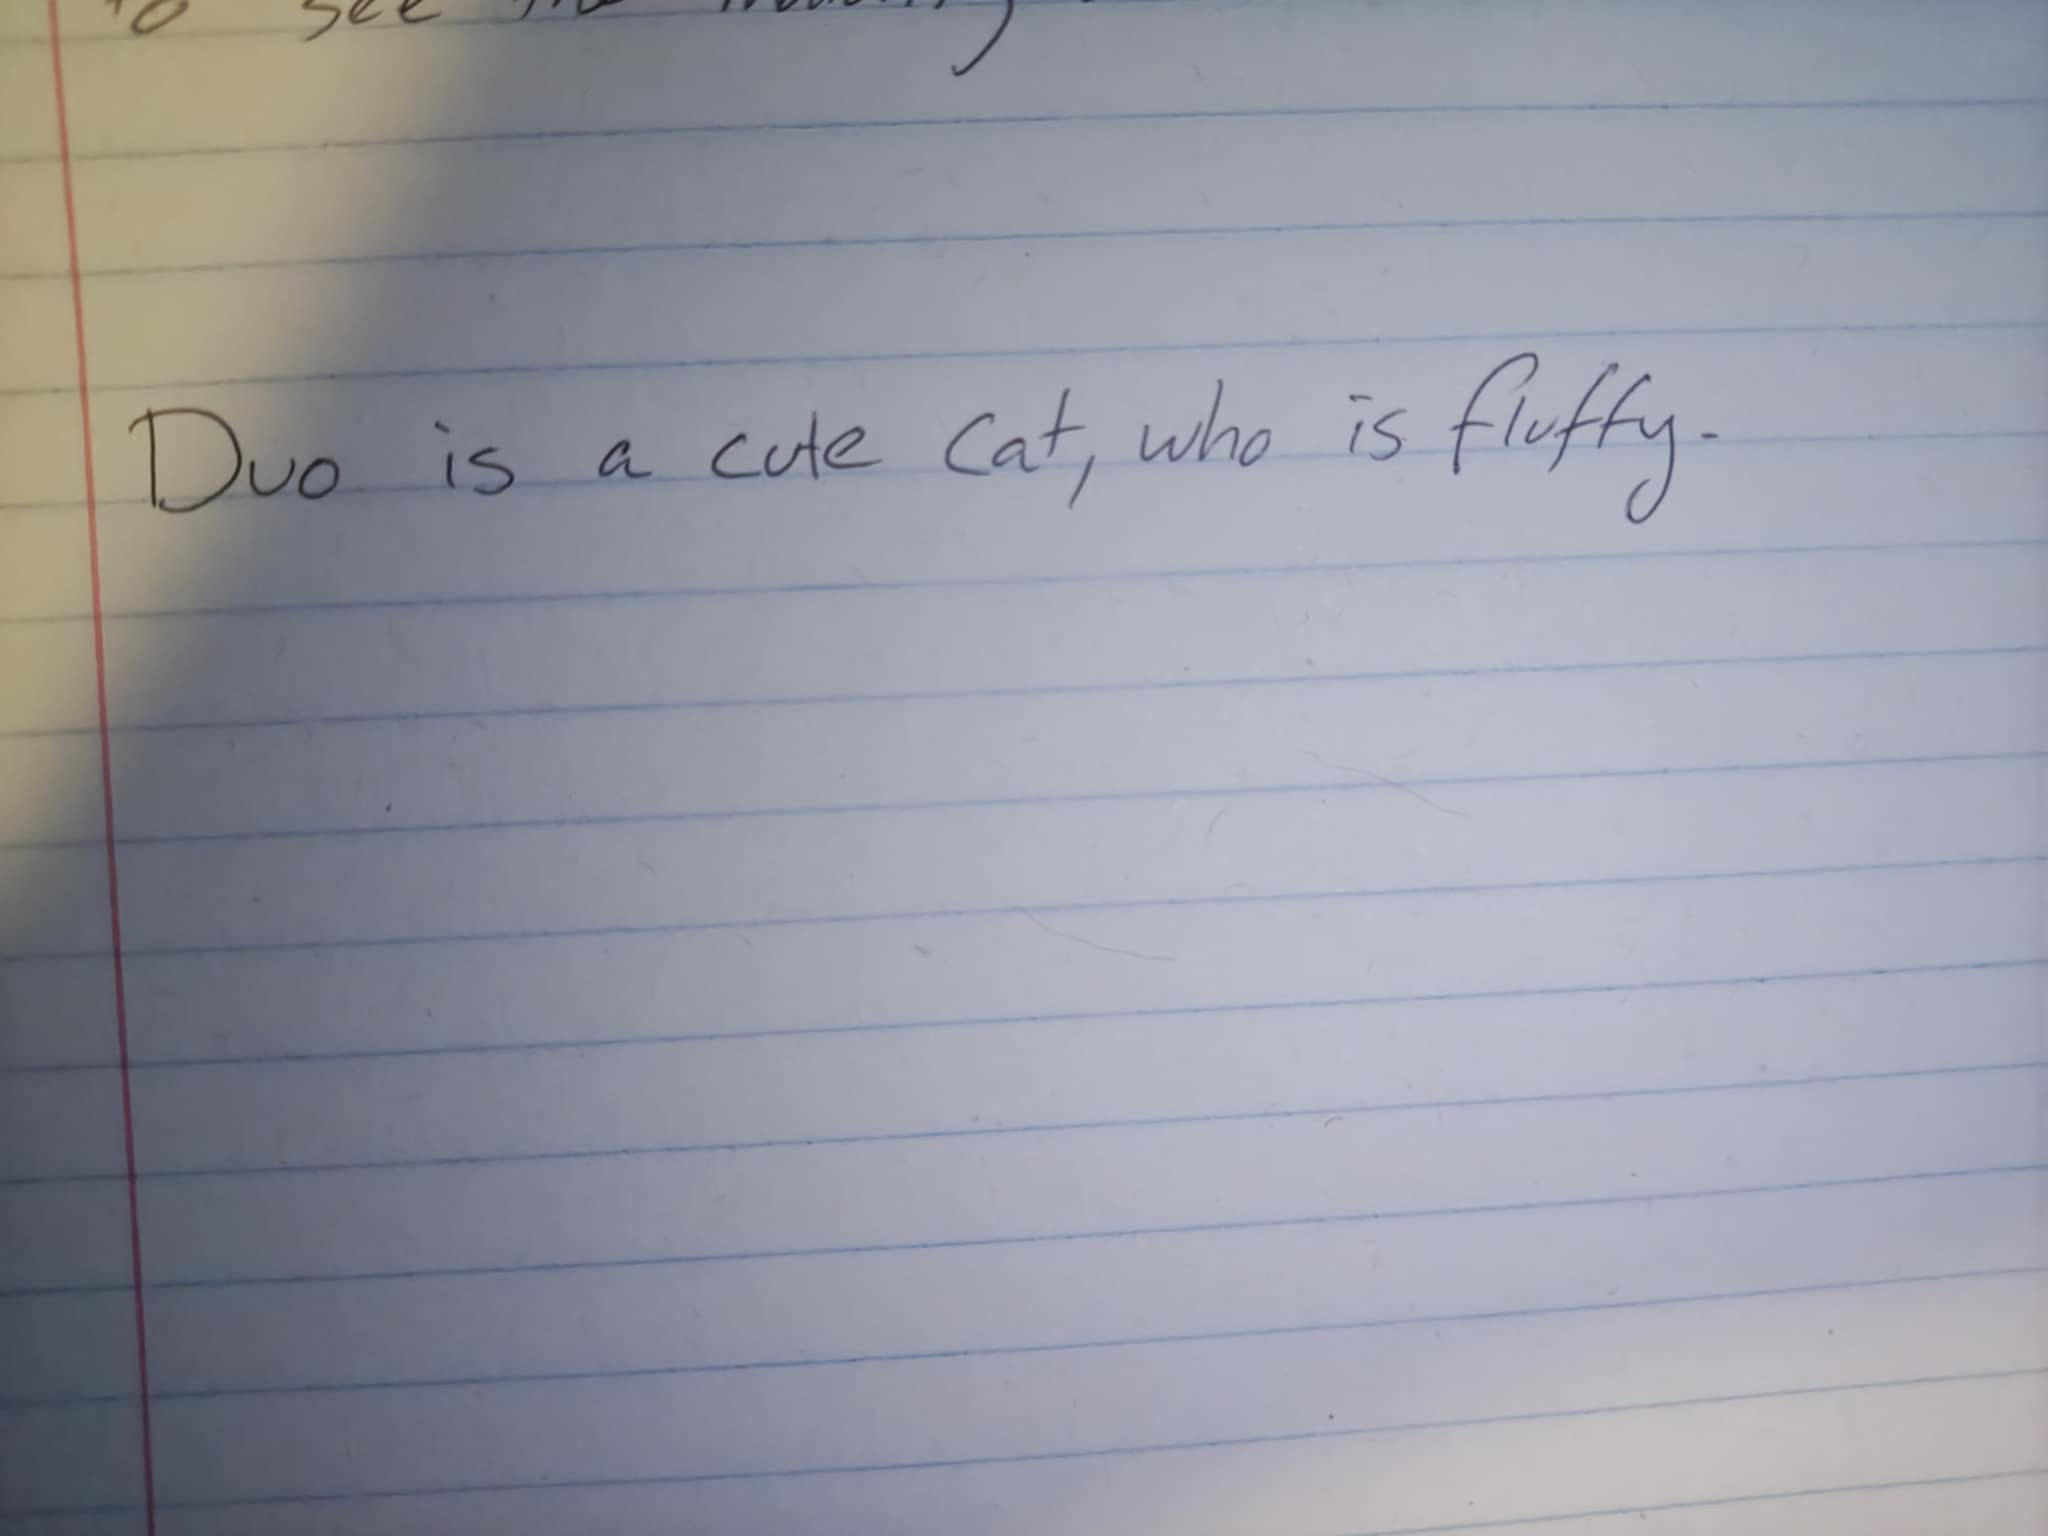 to see the
Duo is a cute cat, who is fluffy.